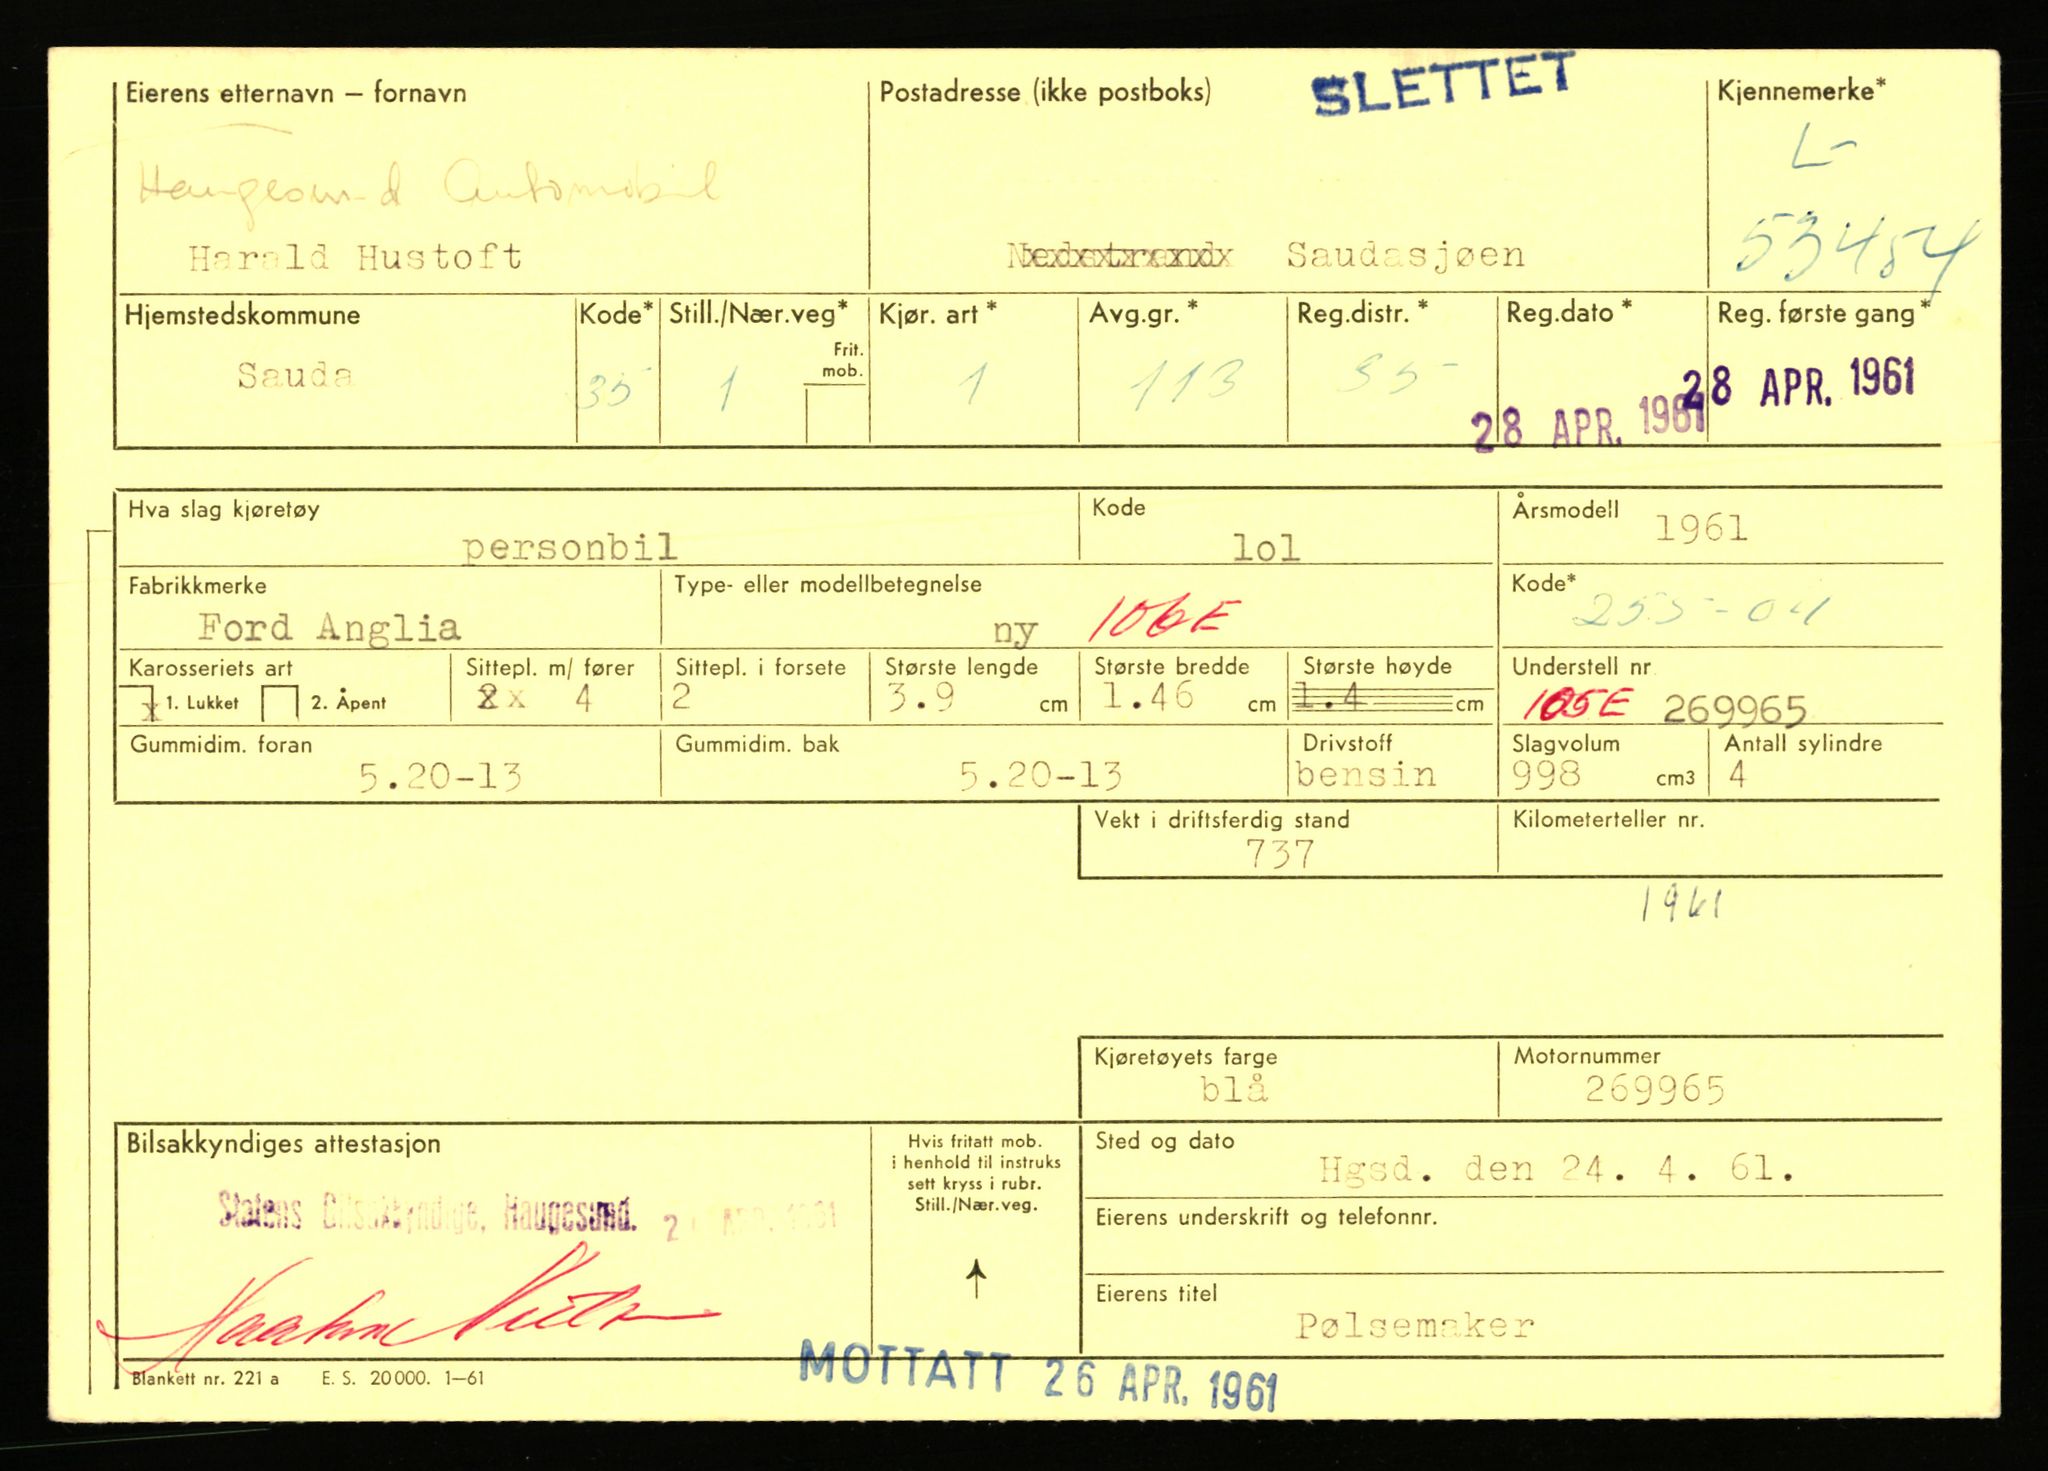 SLETTET
Eierens etternavn – fornavn
Postadresse (ikke postboks)
Kjennemerke*
L-
53454
Haugesund Automobil
Harald Hustoft
Nedstrand Saudasjøen
Hjemstedskommune
Sauda
Kode*
35
Still./Nær.veg*
Frit. mob.
1
Kjør. art *
1
Avg.gr. *
113
Reg.distr. *
35
Reg.dato *
28 APR. 1961
Reg. første gang*
28 APR. 1961
Hva slag kjøretøy
personbil
Kode
lol
Årsmodell
1961
Fabrikkmerke
Ford Anglia
Type- eller modellbetegnelse
ny 106E
Kode*
255-04
Karosseriets art
x 1. Lukket 2. Åpent
Sittepl. m/ fører
x 4
Sittepl. i forsete
2
Største lengde
3.9 cm
Største bredde
1.46 cm
Største høyde
1.4 cm
Understell nr
105E 269965
Gummidim. foran
5.20-13
Gummidim. bak
5.20-13
Drivstoff
bensin
Slagvolum
998 cm3
Antall sylindre
4
Vekt i driftsferdig stand
737
Kilometerteller nr.
1961
Kjøretøyets farge
blå
Motornummer
269965
Bilsakkyndiges attestasjon
Statens Bilsakkyndige, Haugesund. 2 APR. 1961
Hvis fritatt mob.
i henhold til instruks
sett kryss i rubr.
Still./Nær.veg.
Sted og dato
Hgsd. den 24. 4. 61.
Eierens underskrift og telefonnr.
Eierens titel
Pølsemaker
Blankett nr. 221 a E. S. 20 000. 1–61
MOTTATT 26 APR. 1961